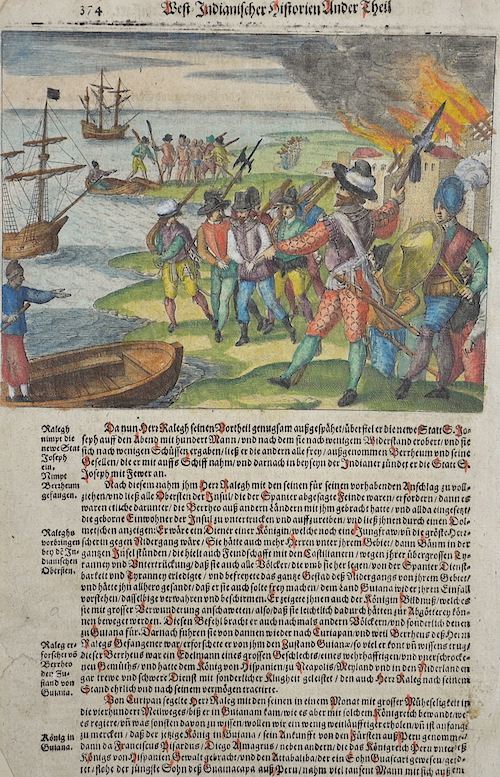 374 West Indianischer Historien Ander Theil
Ralegh
nimpt die
newe Stat
Joseph
ein,
Nimpt
Berrheum
gefangen.
Da nun Herr Ralegh seinen Vortheil genugsam außgespähet/ überfiel er die newe Statt S. Jo-
seph auff den Abend mit hundert Mann/ und nach dem sie nach wenigem Widerstand erobert/ und sie
sich nach wenigen Schüssen ergaben/ ließ er die andern alle frey/ außgenommen Berrheum und seine
Gesellen/ die er mit auffs Schiff nahm/ und darnach in beyseyn der Indianer zündet er die Statt S.
Joseph mit Fewer an.
Nach diesem nahm ihm Herr Ralegh mit den seinen für seinen vorhabenden Anschlag zu voll-
ziehen/ und ließ alle Obersten der Insul/ die der Spanier abgesagte Feinde waren/ erfordern/ dann es
waren etliche darunter/ die Berrheo auß andern Ländern mit ihm gebracht hatte/ und allda eingesetzt/
die geborne Einwohner der Insul zu untertrucken und auffzureiben/ und ließ ihnen durch einen Dol-
Raleghs
verbringen
bey dē In-
dianischen
Obersten.
metschen anzeigen: Er wäre ein Diener einer Königin/ welche noch eine Jungfraw/ uñ die gröste Herr-
scherin gegen Nidergang wäre/ Sie hätte auch mehr Herren unter ihrem Gebiet/ dann Bäum in der
ganzen Insel stünden/ die hielt auch Feindschafft mit den Castilianern/ wegen ihrer übergrossen Ty-
ranney und Untertrückung/ daß sie auch alle Völcker/ die umb sie her legen/ von der Spanier Dienst-
barkeit und Tyranney erledigte/ und befreyete das ganze Gestad deß Nidergangs von ihrem Gebiet/
und hätte ihn allhero gesandt/ daß er sie auch solte frey machen/ dem Land Guiana wider ihren Einfall
vorstehen/ dasselbige verwahren und beschirmen. Er zeigete ihnen auch der Königin Bildnuß/ welches
sie mit grosser Verwunderung anschaweten/ also/ daß sie leichtlich dadurch hätten zur Abgötterey kön-
nen beweget werden. Diesen Befehl bracht er auch nachmals andern Völckern/ und sonderlich denen
zu Guiana für. Darnach fuhren sie von dannen wieder nach Curiapan/ und weil Berrheus deß Herrn
Ralegh er
forschet võ
Berrheo
der Zu-
stand von
Guiana.
Ralegs Gefangener war/ erforschete er von ihm den Zustand Guiana/ so viel er kont uñ wissens trug/
dieser Berrheus war ein Edelmann eines grossen Geschlechts/ eines wolversuchten/ und unerschrocke-
nen Gemühts/ und hatte dem König von Hispanien/ zu Neapolis/ Meyland und in den Niderlanden
gar trewe und schwere Dienst mit sonderlicher Klugheit geleistet/ den auch Herr Ralegh nach seinem
Stand ehrlich und nach seinem vermögen tractirte.
König in
Guiana.
Von Curipan segelte Herr Ralegh mit den seinen in einem Monat mit grosser Mühseligkeit in
die vierhundert Meilweges/ biß er in Guianam kam/ wie es aber mit solchem Königreich bewand/ wer
es regiere/ uñ was sonsten davon zu wissen/ wollen wir ein wenig weitläufftiger erholen/ uñ ist anfangs
zu mercken/ daß der jetzige König in Guiana/ sein Ankunfft von den Fürsten auß Peru genommen/
dann da Franciscus Pisardus/ Diego Almagrus/ neben andern/ die das Königreich Peru unter deß
Königs von Hispanien Gewalt gebracht/ und den Attabaliba/ der ein Sohn Guascari gewesen/ geöd-
tet/ flohe der jüngste Sohn deß Guainacapa auß Peru/ nahm viel tausent Mann mit sich auß